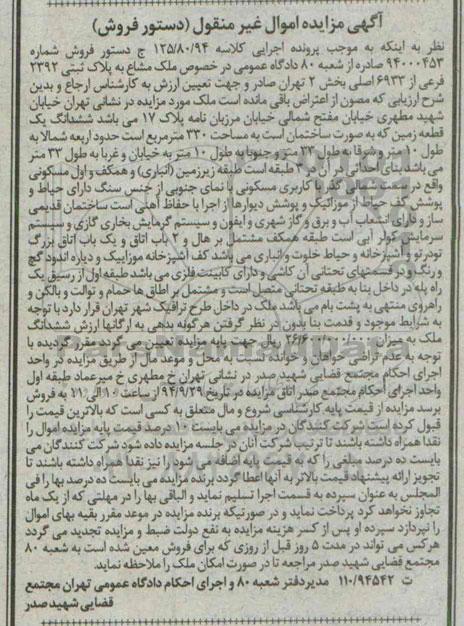 آگهی مزایده اموال غیر منقول (دستور فروش)
نظر به اینکه به موجب پرونده اجرایی کلاسه ۱۲۵/۸۰/۹۴ ج دستور فروش شماره
۹۴۰۰۰۴۵۳ صادره از شعبه ۸۰ دادگاه عمومی در خصوص ملک مشاع به پلاک ثبتی ۲۳۹۲
فرعی از ۶۹۳۳ اصلی بخش ۲ تهران صادر و جهت تعیین ارزش به کارشناس ارجاع و بدین
شرح ارزیابی که مصون از اعتراض باقی مانده است ملک مورد مزایده در نشانی تهران خیابان
شهید مطهری خیابان مفتح شمالی خیابان مرزبان نامه پلاک ۱۷ می باشد ششدانگ یک
قطعه زمین که به صورت ساختمان است به مساحت ۳۳۰ مترمربع است حدود اربعه شمالا به
طول ۱۰ متر و شرقا به طول ۳۳ متر و جنوبا به طول ۱۰ متر به خیابان و غربا به طول ۳۳ متر
می باشد بنای احداثی در آن در ۳ طبقه است طبقه زیرزمین (انباری) و همکف و اول مسکونی
واقع در سمت شمالی گذر با کاربری مسکونی با نمای جنوبی از جنس سنگ دارای حیاط و
پوشش کف حیاط از موزائیک و پوشش دیوارها از اجرا با حفاظ آهنی است ساختمان قدیمی
ساز و دارای انشعاب آب و برق و گاز شهری و آیفون و سیستم گرمایش بخاری گازی و سیستم
سرمایش کولر آبی است طبقه همکف مشتمل بر هال و ۲ باب اتاق و یک باب اتاق بزرگ
تودرتو و آشپزخانه و حیاط خلوت و انباری می باشد کف آشپزخانه موزاییک و دیاره اندود گچ
و رنگ و در قسمتهای تحتانی آن کاشی و دارای کابینت فلزی می باشد طبقه اول از رسیق یک
راه پله در داخل بنا به طبقه تحتانی متصل است و مشتمل بر اطاق ها حمام و توالت و بالکن و
راهروی منتهی به پشت بام می باشد ملک در داخل طرح ترافیک شهر تهران قرار دارد با توجه
به شرایط موجود و قدمت بنا بدون در نظر گرفتن هرگونه بدهی به ارگانها ارزش ششدانگ
ملک به میزان ریال جهت پایه مزایده تعیین می گردد مقرر گردیده با
توجه به عدم تراضی خواهان و خوانده نسبت به محل و موعد مال از طریق مزایده در واحد
اجرای احکام مجتمع قضایی شهید صدر در نشانی تهران خ مطهری خ میرعماد طبقه اول
واحد اجرای احکام مجتمع صدر اتاق مزایده در تاریخ ۹۴/۹/۲۹ از ساعت ۱۰ الی ۱۱ به فروش
برسد مزایده از قیمت پایه کارشناسی شروع و مال متعلق به کسی است که بالاترین قیمت را
قبول کرده است شرکت کنندگان در مزایده می بایست ۱۰ درصد قیمت پایه مزایده اموال را
نقدا همراه داشته باشند تا ترتیب شرکت آنان در جلسه مزایده داده شود شرکت کنندگان می
بایست ده درصد مبلغی را که به قیمت پایه اضافه می شود را نیز نقدا همراه داشته باشند تا
تجویز ارائه پیشنهاد قیمت بالاتر به آنها اعطا گردد برنده مزایده می بایست ده درصد بها را فی
المجلس به عنوان سپرده به قسمت اجرا تسلیم نماید و الباقی بها را در مهلتی که از یک ماه
تجاوز نخواهد کرد پرداخت نماید و در صورتیکه برنده مزایده در موعد مقرر بقیه بهای اموال
را نپردازد سپرده او پس از کسر هزینه مزایده به نفع دولت ضبط و مزایده تجدید می گردد
هرکس می تواند در مدت ۵ روز قبل از روزی که برای فروش معین شده است به شعبه ۸۰
مجتمع قضایی شهید صدر مراجعه تا در صورت امکان ملک را ملاحظه نماید.
ت ۱۱۰/۹۴۵۴۲ مدیر دفتر شعبه ۸۰ و اجرای احکام دادگاه عمومی تهران مجتمع
قضایی شهید صدر